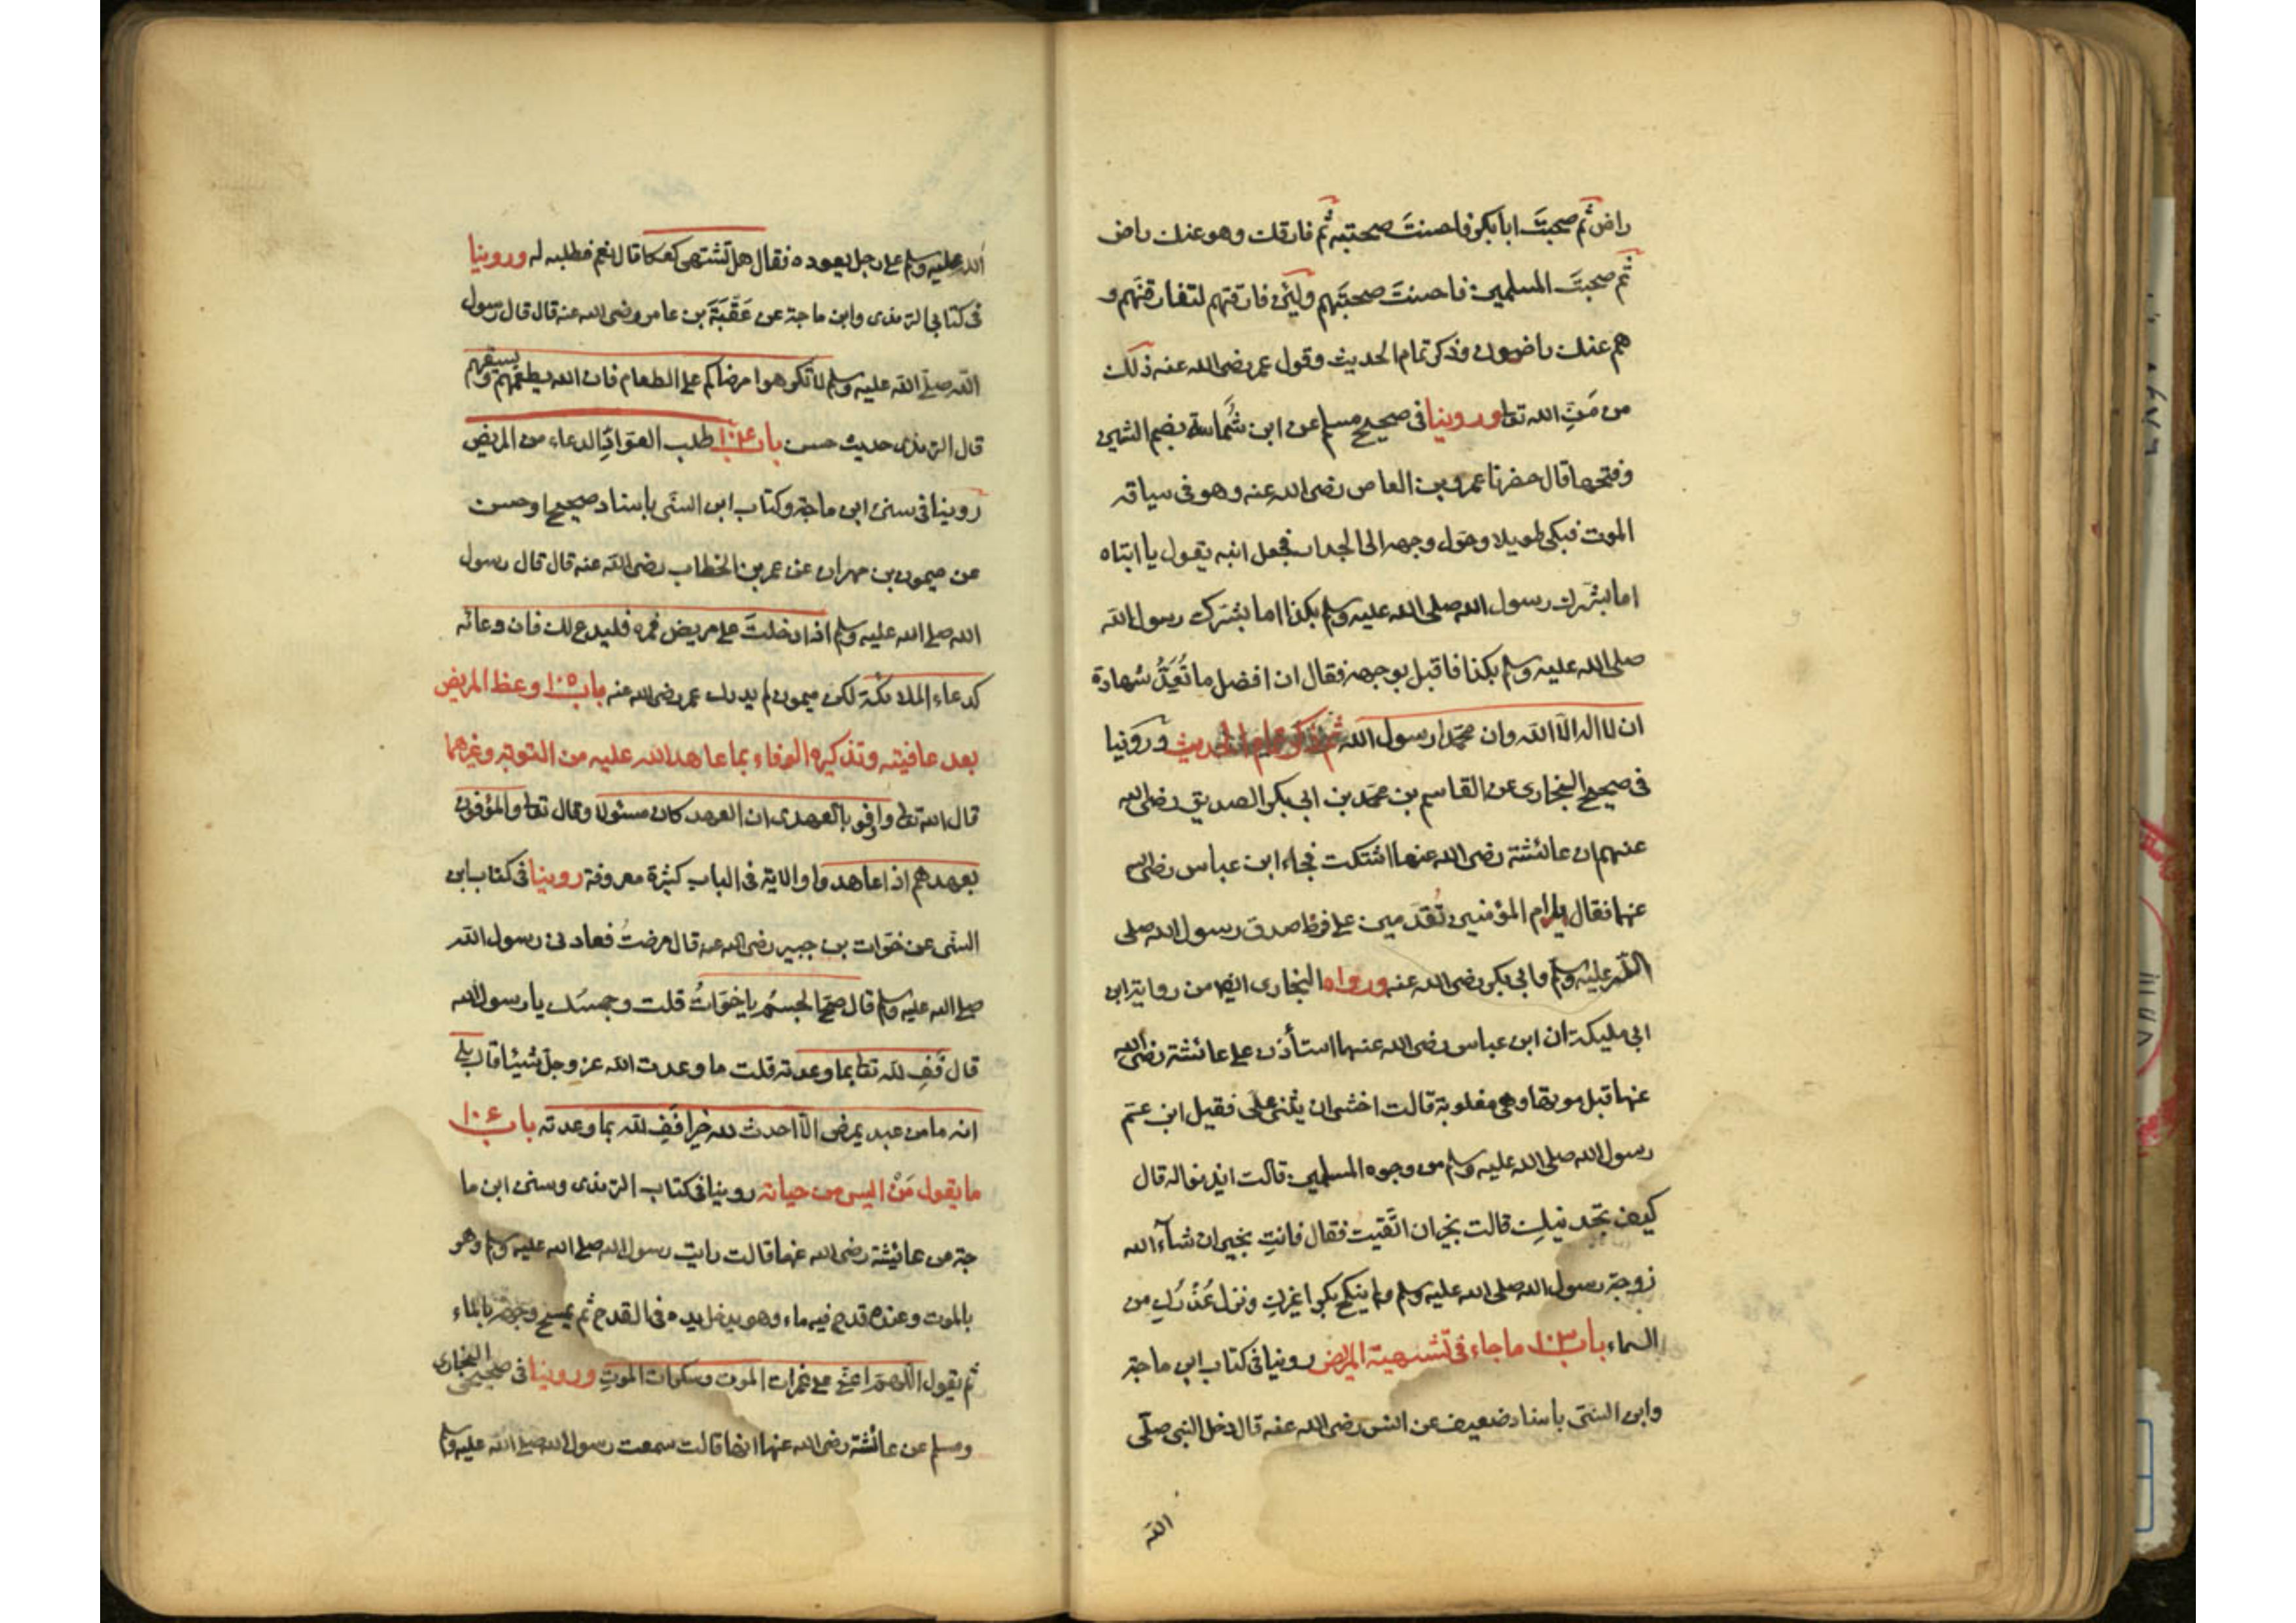 راض ثم صحبتَ ابا بكر فاحسنتَ صحبته ثم فارقك وهو عنك راض
ثم صحبتَ المسلمين فاحسنتَ صحبتَهم ولئن فارقتهم لتفارقنهم و
هم عنك راضون وذكر تمام الحديث وقول عمر رضى الله عنه ذلك
من مَنِّ الله تعا وروينا فى صحيح مسلم عن ابن شُماسة بضم الشين
وفتحها قال حضرنا عمرو بن العاص رضى الله عنه وهو فى سياقه
الموت فبكى طويلا وحول وجهه الى الجدار فجعل ابنه يقول يا ابتاه
اما بشرك رسول الله صلى الله عليه وسلم بكذا اما بشرك رسول الله
صلى الله عليه وسلم بكذا فاقبل بوجهه فقال ان افضل ما نُعِدُّ شهادة
ان لا اله الا الله وان محمدا رسول الله ثم ذكر تمام الحديث وروينا
فى صحيح البخارى عن القاسم بن محمد بن ابى بكر الصديق رضى الله
عنهم ان عائشة رضى الله عنها اشتكت فجاء ابن عباس رضى الله
عنهما فقال يا ام المؤمنين تُقدمين على فرط صدق رسول الله صلى
الله عليه وسلم وابى بكر رضى الله عنه ورواه البخارى ايضا من رواية ابن
ابى مليكة ان ابن عباس رضى الله عنهما استأذن على عائشة رضى الله
عنها قبل موتها وهى مغلوبة قالت اخشى ان يثنى على فقيل ابن عم
رسول الله صلى الله عليه وسلم من وجوه المسلمين قالت ايذنوا له قال
كيف تجدينكِ قالت بخير ان اتقيت فقال فانتِ بخير ان شآء الله
زوجة رسول الله صلى الله عليه وسلم ولم ينكح بكرا غيركِ ونزل عُذْركِ من
السماء باب ١٠٣ ما جاء فى تشهية المريض روينا فى كتاب ابن ماجة
وابن السنى باسناد ضعيف عن انس رضى الله عنه قال دخل النبى صلى
الله
الله عليه وسلم على رجل يعوده فقال هل تشتهى كعكا قال نعم فطلبه له وروينا
فى كتابى الترمذى وابن ماجة عن عقبة بن عامر رضى الله عنه قال قال رسول
الله صلى الله عليه وسلم لا تكرهوا مرضاكم على الطعام فان الله يطعمهم ويسقيهم
قال الترمذى حديث حسن باب ١٠٤ طلب العواد الدعاء من المريض
روينا فى سنن ابن ماجة وكتاب ابن السنى باسناد صحيح او حسن
عن ميمون بن مهران عن عمر بن الخطاب رضى الله عنه قال قال رسول
الله صلى الله عليه وسلم اذا دخلتَ على مريض فمره فليدع لك فان دعائه
كدعاء الملائكة لكن ميمون لم يدرك عمر رضى الله عنه باب ١٠٥ وعظ المريض
بعد عافيته وتذكيره الوفاء بما عاهد الله عليه من التوبة وغيرهما
قال الله تعا واوفوا بالعهد ان العهد كان مسئولا وقال تعا والموفون
بعهدهم اذا عاهدوا والاية فى الباب كثيرة معروفة روينا فى كتاب ابن
السنى عن خوات بن جبير رضى الله عنه قال مرضتُ فعادنى رسول الله
صلى الله عليه وسلم قال صح الجسم يا خوات قلت وجسمك يا رسول الله
قال فَفِ لله تعا بما وعدته قلت ما وعدت الله عز وجل شيئا قال بلى
انه ما من عبد يمرض الا احدث لله خيرا فَفِ لله بما وعدته باب ١٠٦
ما يقول مَنْ اليس من حياته روينا فى كتاب الترمذى وسنن ابن ما
جة عن عائيشة رضى الله عنها قالت رايت رسول الله صلى الله عليه وسلم وهو
بالموت وعنده قدح فيه ماء وهو يدخل يده فى القدح ثم يمسح وجهه بالماء
ثم يقول اللهم اعنى على غمرات الموت وسكرات الموت وروينا فى صحيحى البخارى
ومسلم عن عائشة رضى الله عنها ايضا قالت سمعت رسول الله صلى الله عليه وسلم